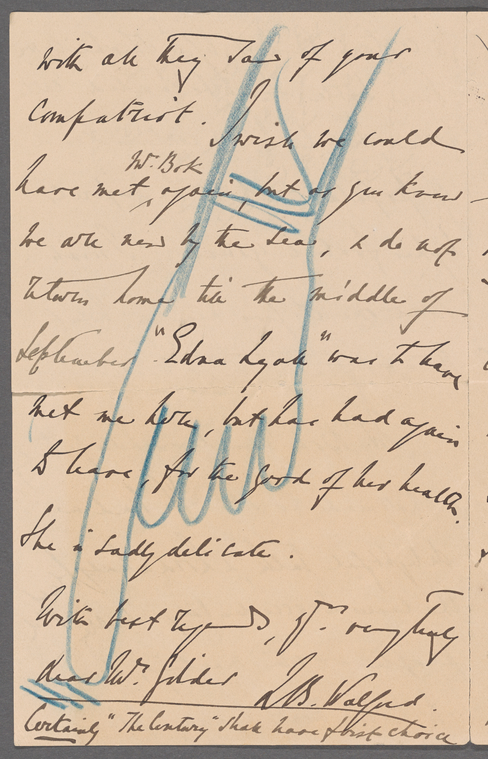 with all they saw of your
compatriot. I wish we could
Mr. Bok
have met again, but as you know
we are now by the sea, & do not
return home till the middle of
September. "Edna Lyall" was to have
met me here, but has had again
to leave, for the good of her health.
She is sadly delicate.
With best regards, yrs. very truly
dear Mr. Gilder L.B. Walford.
Certainly "The Century" shall have first choice